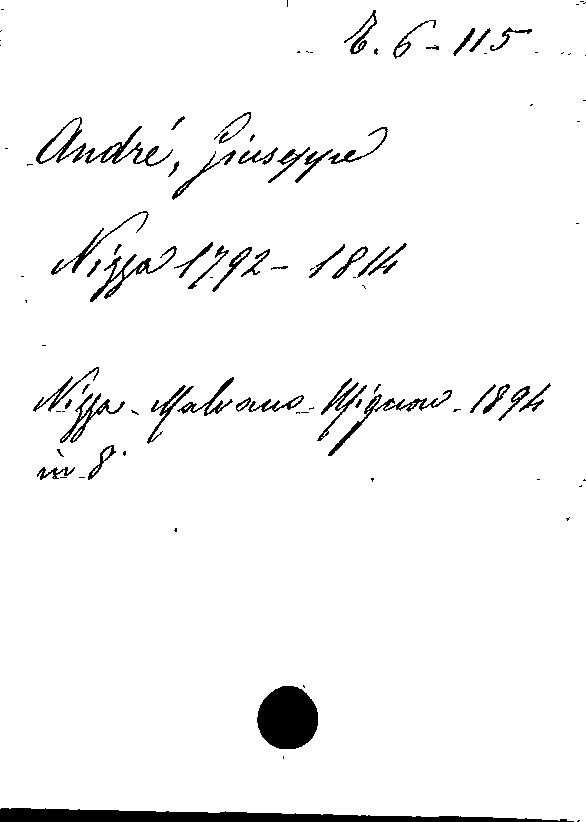 E. 6 - 115
André, Giuseppe
Nizza 1792 - 1814
Nizza - Malvano - Mignon - 1894
in 8°